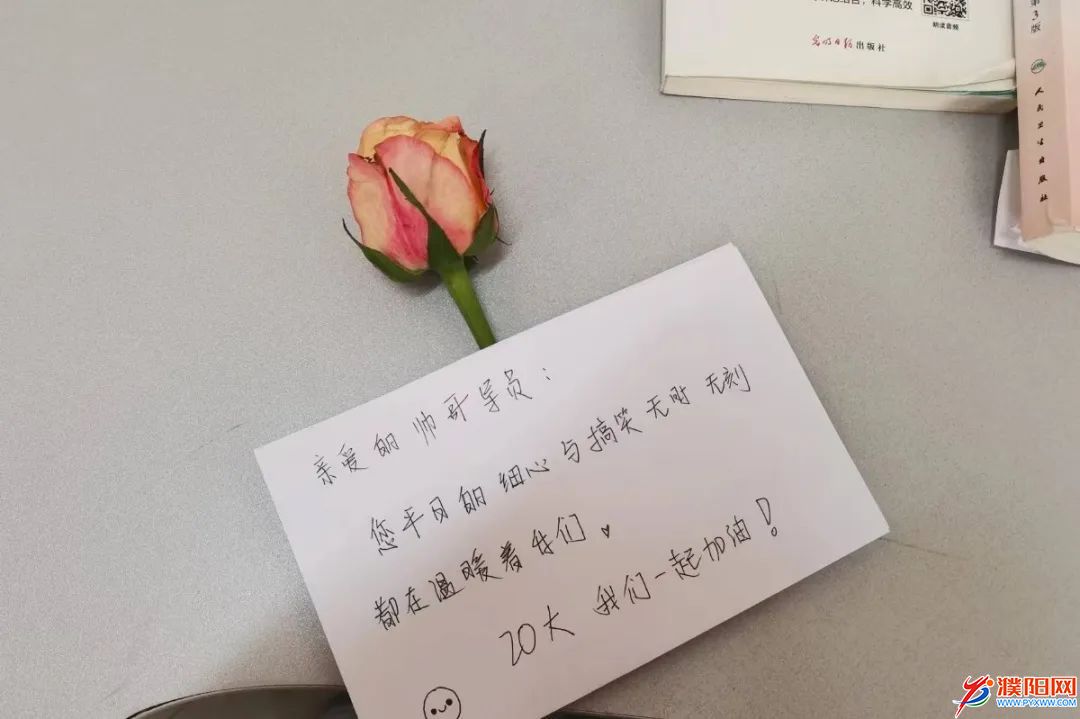 科学高效
朗读音频
光明日报出版社
第3版
人民卫生出版社
亲爱的帅哥导员：
您平日的细心与搞笑无时无刻
都在温暖着我们。
20大 我们一起加油！
濮阳网
WWW.PYXWW.COM